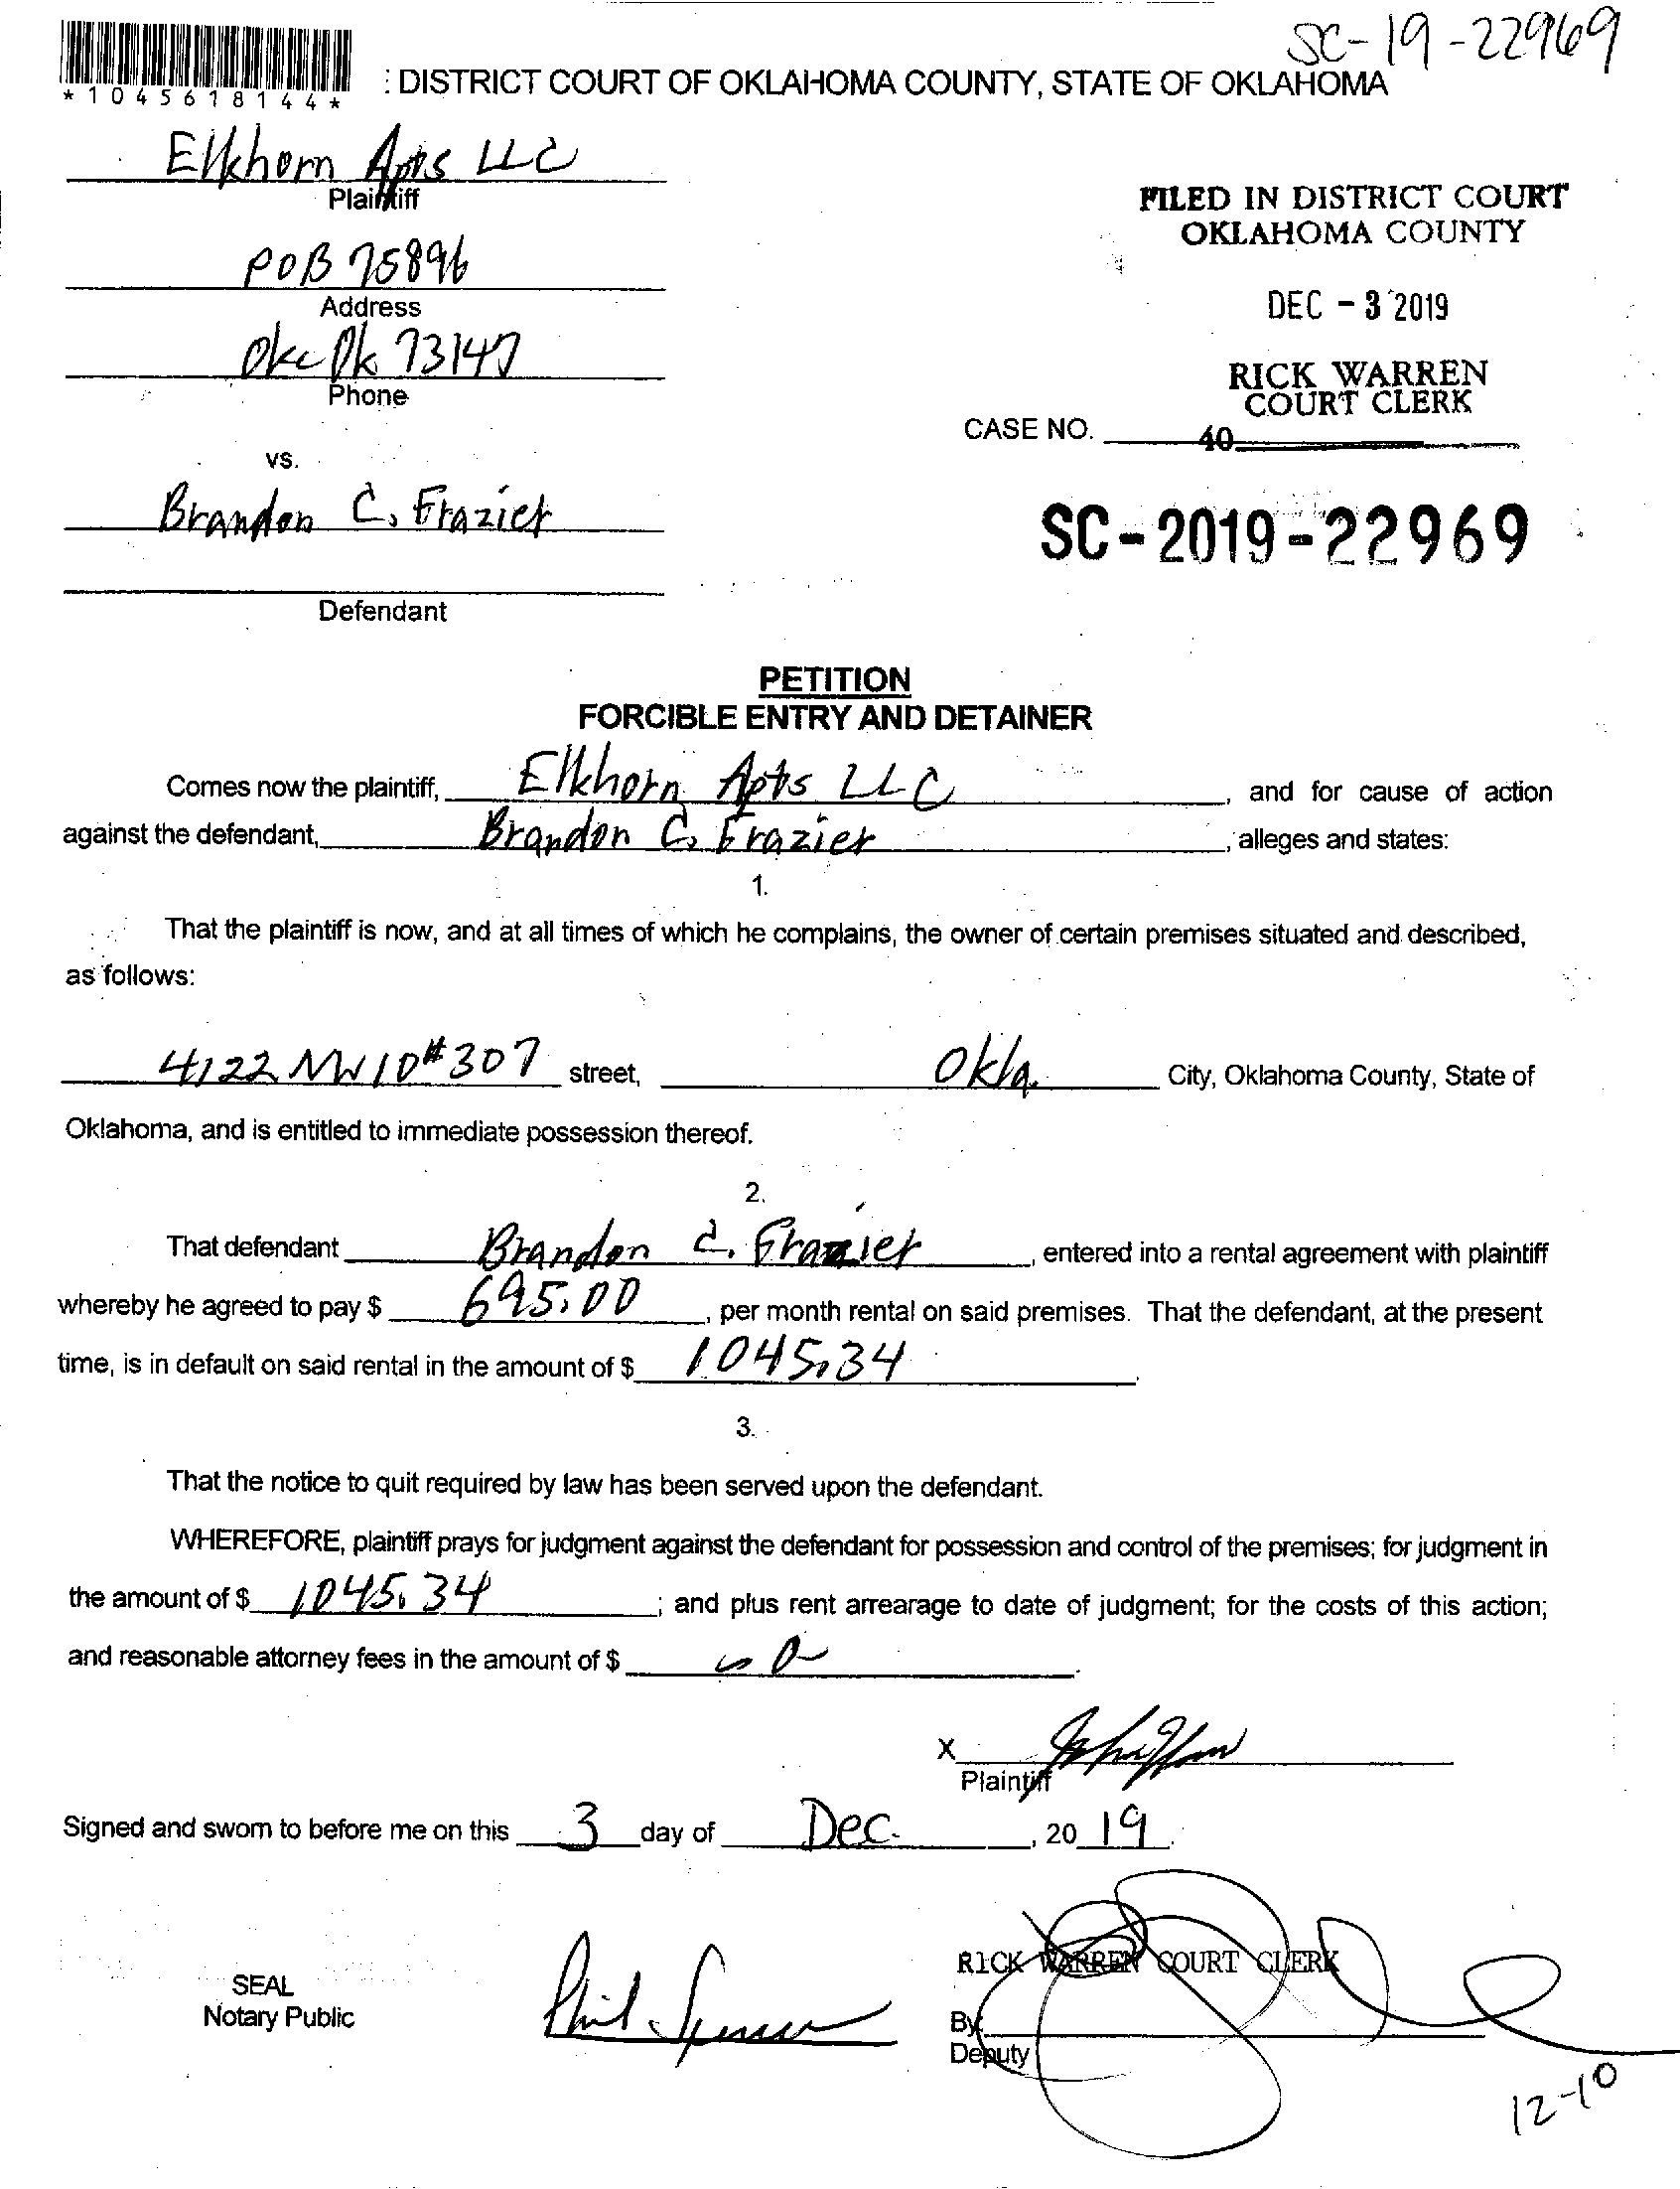 SC-19-22969
*1045618144*
: DISTRICT COURT OF OKLAHOMA COUNTY, STATE OF OKLAHOMA
Elkhorn Apts LLC
Plaintiff
POB 75896
Address
Okc Ok 73147
Phone
FILED IN DISTRICT COURT
OKLAHOMA COUNTY
DEC - 3 2019
RICK WARREN
COURT CLERK
CASE NO.
40
vs.
Brandon C. Frazier
SC-2019-22969
Defendant
PETITION
FORCIBLE ENTRY AND DETAINER
Comes now the plaintiff, Elkhorn Apts LLC, and for cause of action
against the defendant, Brandon C. Frazier, alleges and states:
1.
That the plaintiff is now, and at all times of which he complains, the owner of certain premises situated and described,
as follows:
4122 NW 10 #307 street, Okla. City, Oklahoma County, State of
Oklahoma, and is entitled to immediate possession thereof.
2.
That defendant Brandon C. Frazier, entered into a rental agreement with plaintiff
whereby he agreed to pay $ 695.00, per month rental on said premises. That the defendant, at the present
time, is in default on said rental in the amount of $ 1045.34.
3.
That the notice to quit required by law has been served upon the defendant.
WHEREFORE, plaintiff prays for judgment against the defendant for possession and control of the premises; for judgment in
the amount of $ 1045.34; and plus rent arrearage to date of judgment; for the costs of this action;
and reasonable attorney fees in the amount of $ 0.
X
Plaintiff
Signed and sworn to before me on this 3 day of Dec., 20 19.
RICK WARREN COURT CLERK
SEAL
Notary Public
By:
Deputy
12-10